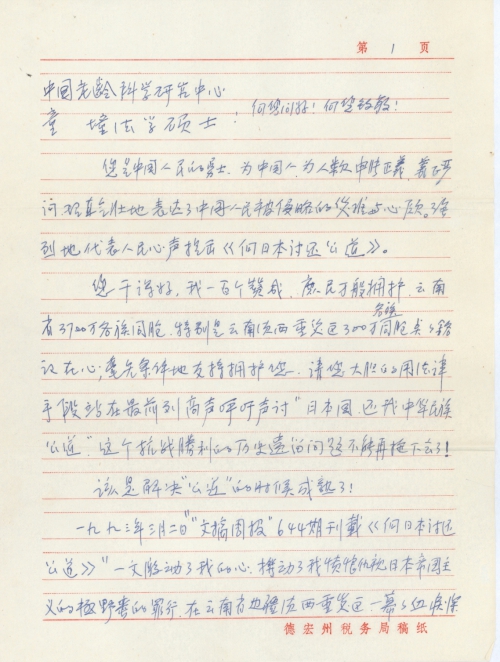 第 1 页
中国老龄科学研究中心
童增法学硕士: 向您问好!向您致敬!
您是中国人民的勇士,为中国人,为人类申张正義,義正严
词,理直气壮地表达了中国人民被侵略的灾难与心愿。强
烈地代表人民心声提出《向日本讨还公道》。
您干得好,我一百个赞成,庶民万般拥护,云南
省3700万各族同胞,特别是云南滇西重灾区300万各族同胞类
议在心,无条件地支持拥护您,请您大胆的用法律
手段站在最前列高声呼吁声讨"日本国,还我中华民族
公道",这个抗战勝利的历史遗留问题不能再拖下去了!
该是解决"公道"的时候成熟了!
一九九三年三月二日"文摘周报"644期刊載《向日本讨还
公道》"一文脍动了我的心,搏动了我愤恨仇视日本帝国主
义的极野蛮的罪行,在云南省边疆滇西重灾区,一幕幕血泪深
德宏州税务局稿纸